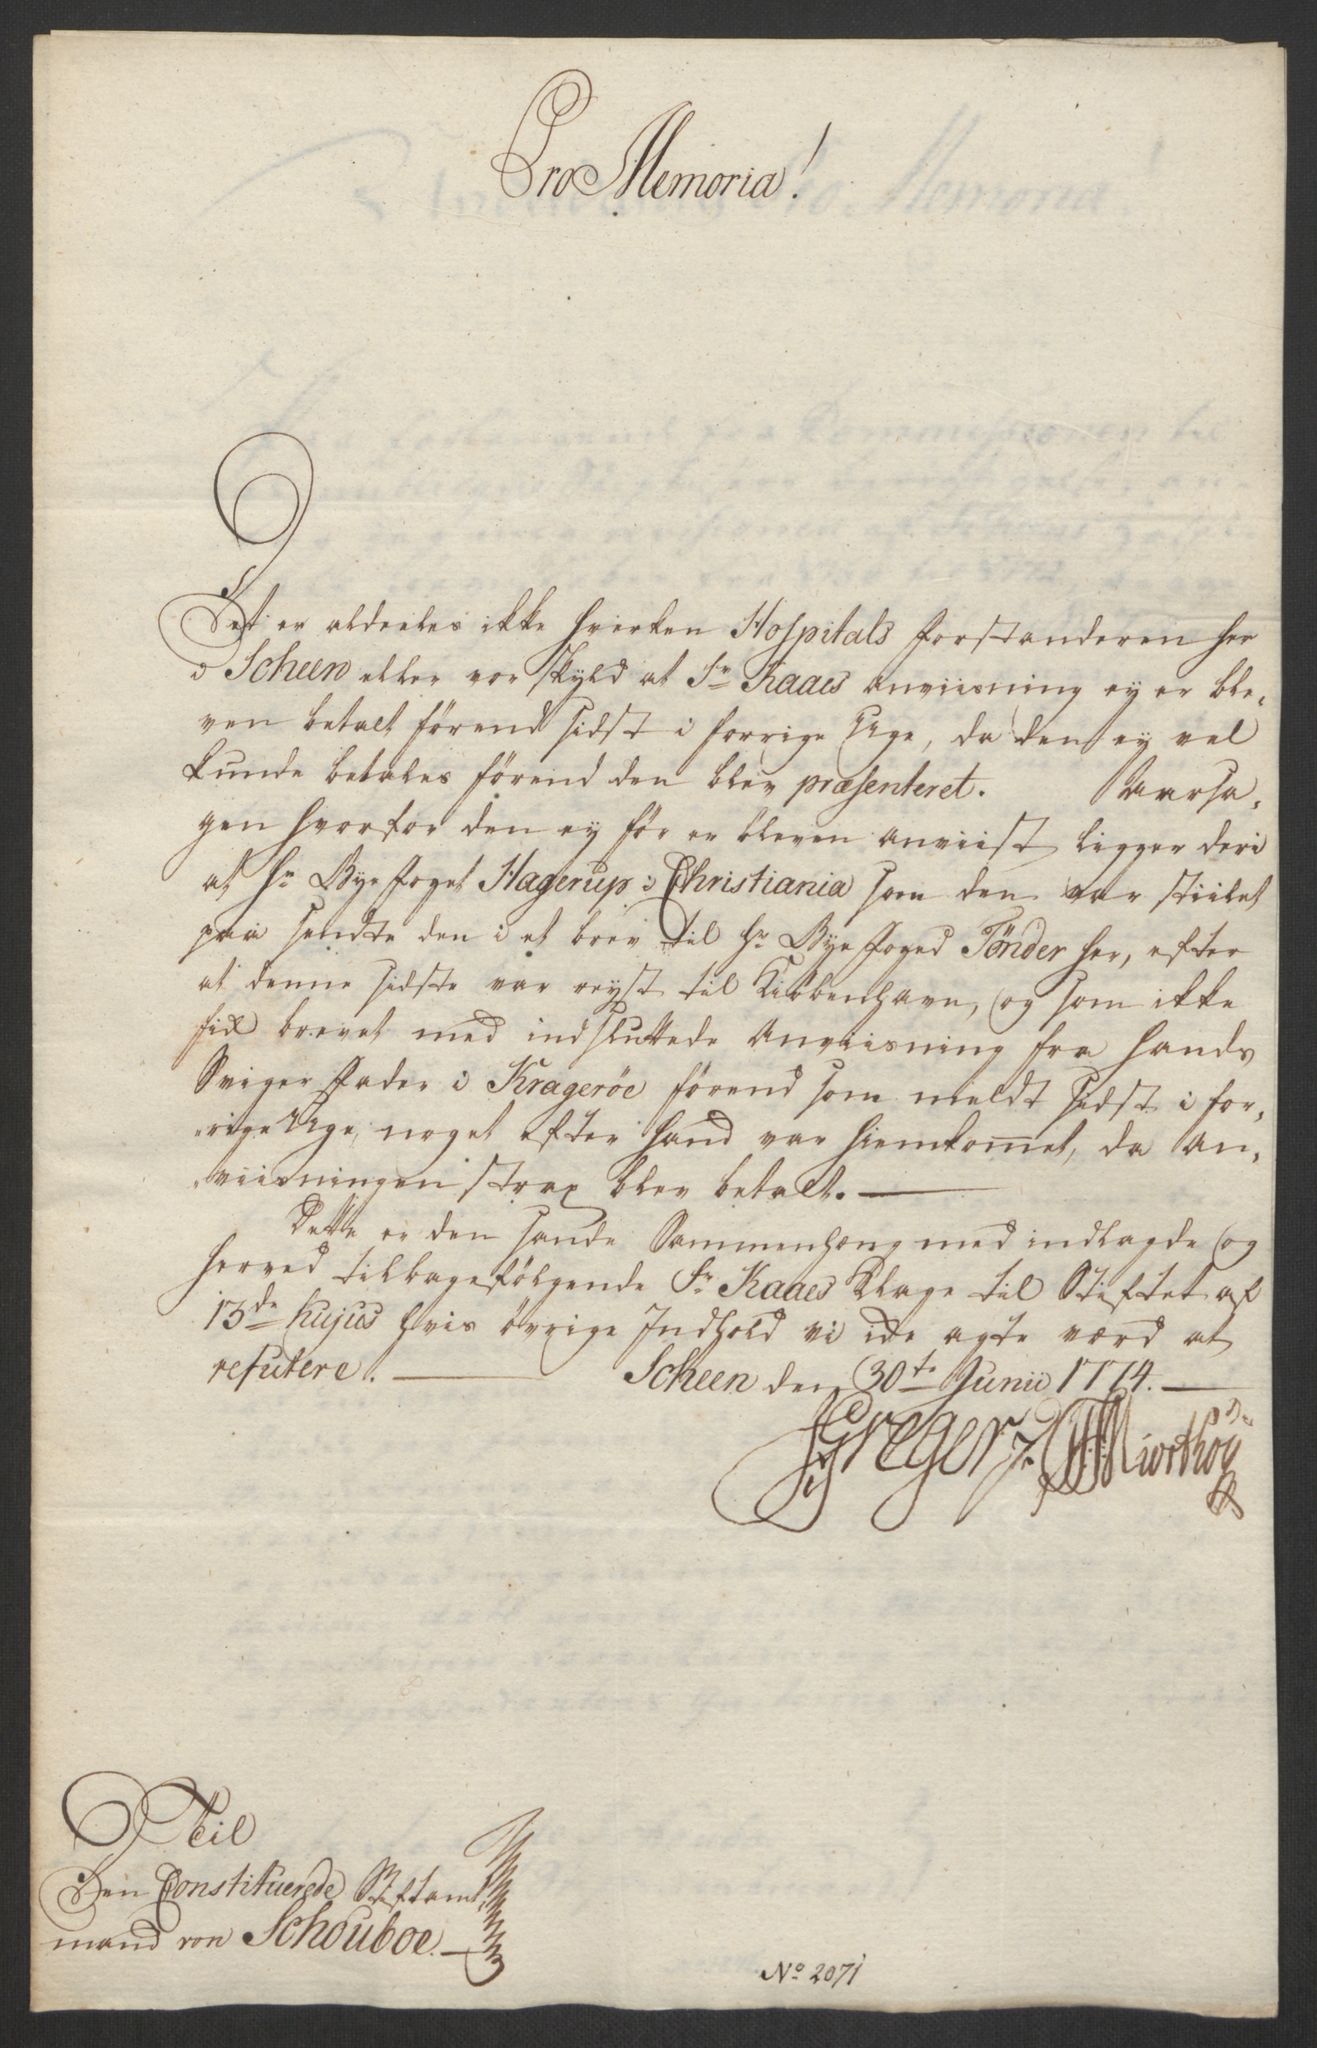 Pro Memoria!
Det er aldeeles ikke hverken Hospitals forstanderen her
i Scheen eller vor skyld at Sr Kaaes anviisning ey er ble,
ven betalt förend sidst i forrige Uge, da den ey vel
kunde betales förend den blev præsenteret. Aarsa,
gen hvorfor den ey för er bleven anviist ligger deri
at Hr Byefoget Hagerup i Christiania som den var stiilet
paa sendte den i et brev til Hr Byefoged Tönder her, efter
at denne sidste var reyst til Kiöbenhavn, og som ikke
fik brevet med indsluttede Anviisning fra hands
Svigerfader i Kragerøe förend som meldt sidst i for,
rige Uge, noget efter hand var hiemkomet, da An,
viisningen strax blev betalt.
Dette er den sande Sammenhæng med indlagde og
herved tilbagefölgende Sr Kaaes Klage til Stiftet af
13de hujus hvis övrige Indhold vi ide agte værd at
refutere. Scheen den 30te Junii 1774.
Gregers Miorthöy
Til
Den Constituerede Stiftamt,
mand von Schouboe.
No 2071